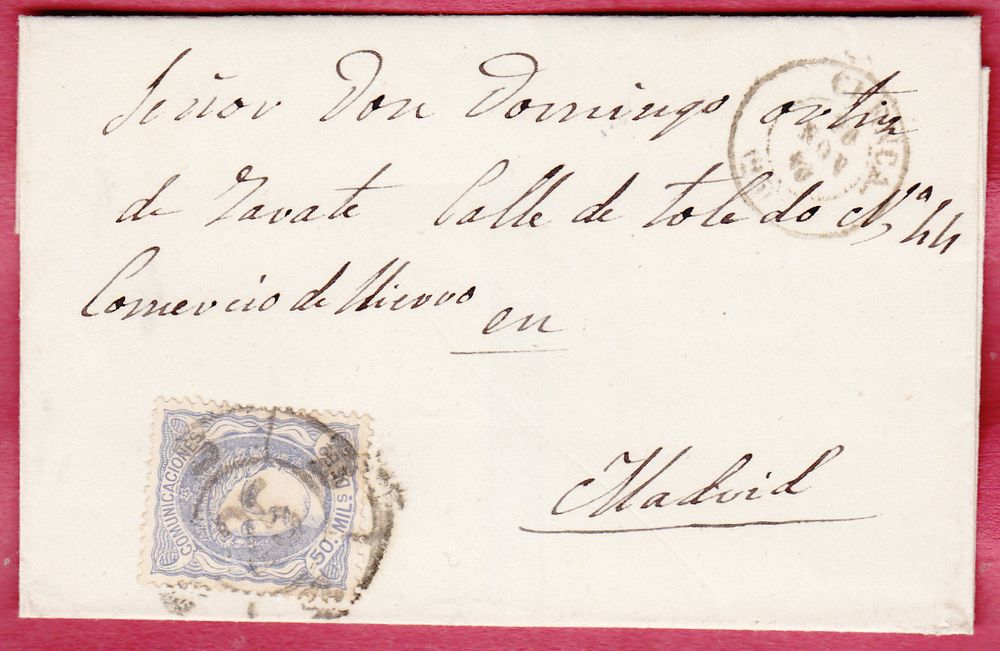 Señor Don Domingo ortiz
de Zarate Calle de toledo Nª 44
Comercio de Hierro
en
Madrid
CUENCA
NOV
COMUNICACIONES
50. MILS.